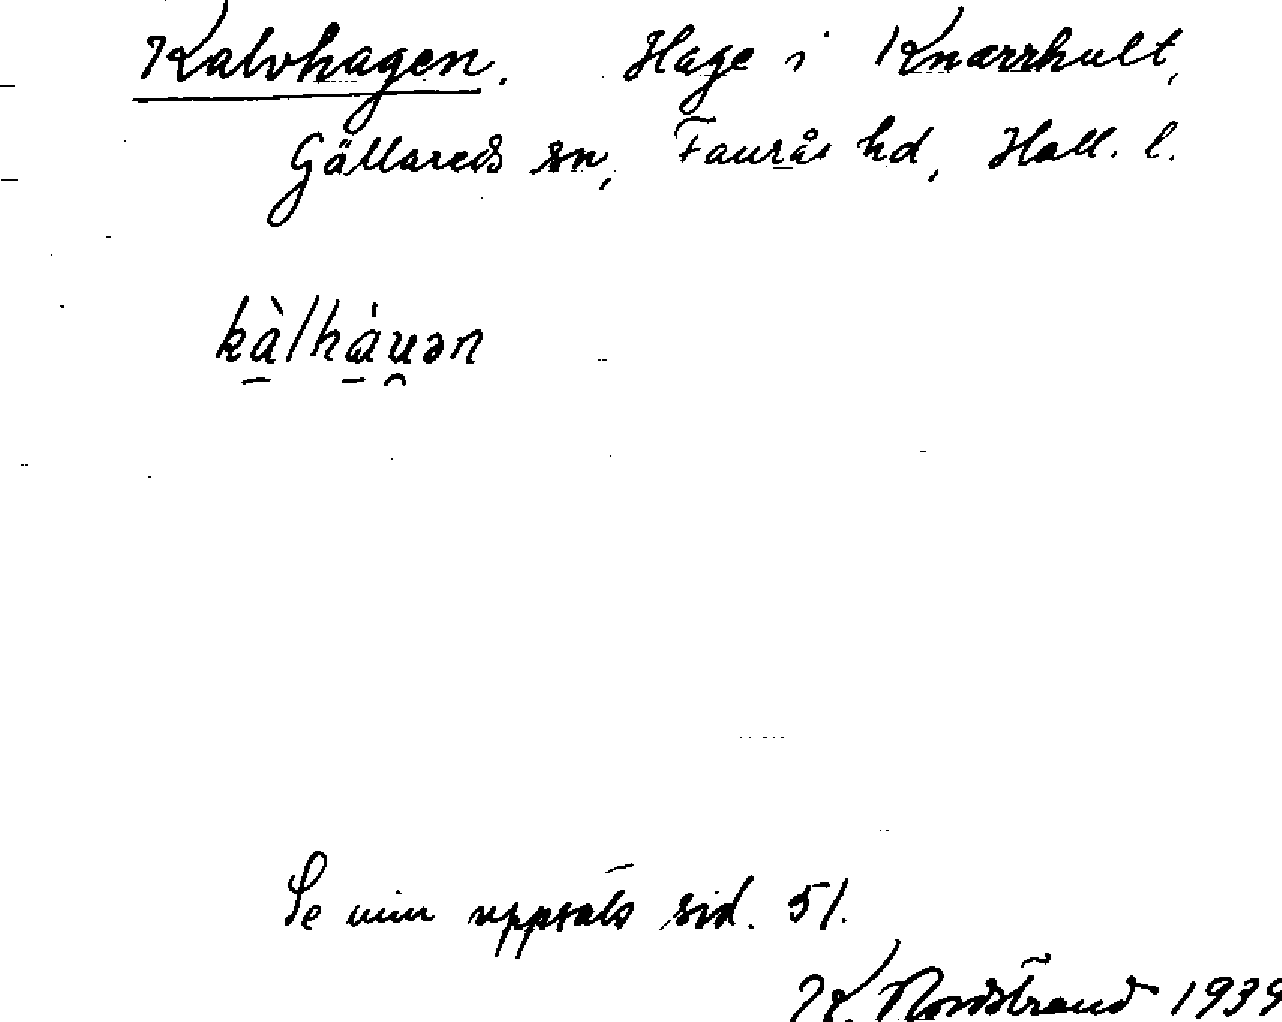 Kalvhagen. Hage i Knarrhult,
Gällareds sn, Faurås hd, Hall. l.
kàlháu̯ən
Se min uppsats sid. 51.
K. Nordstrand 1939